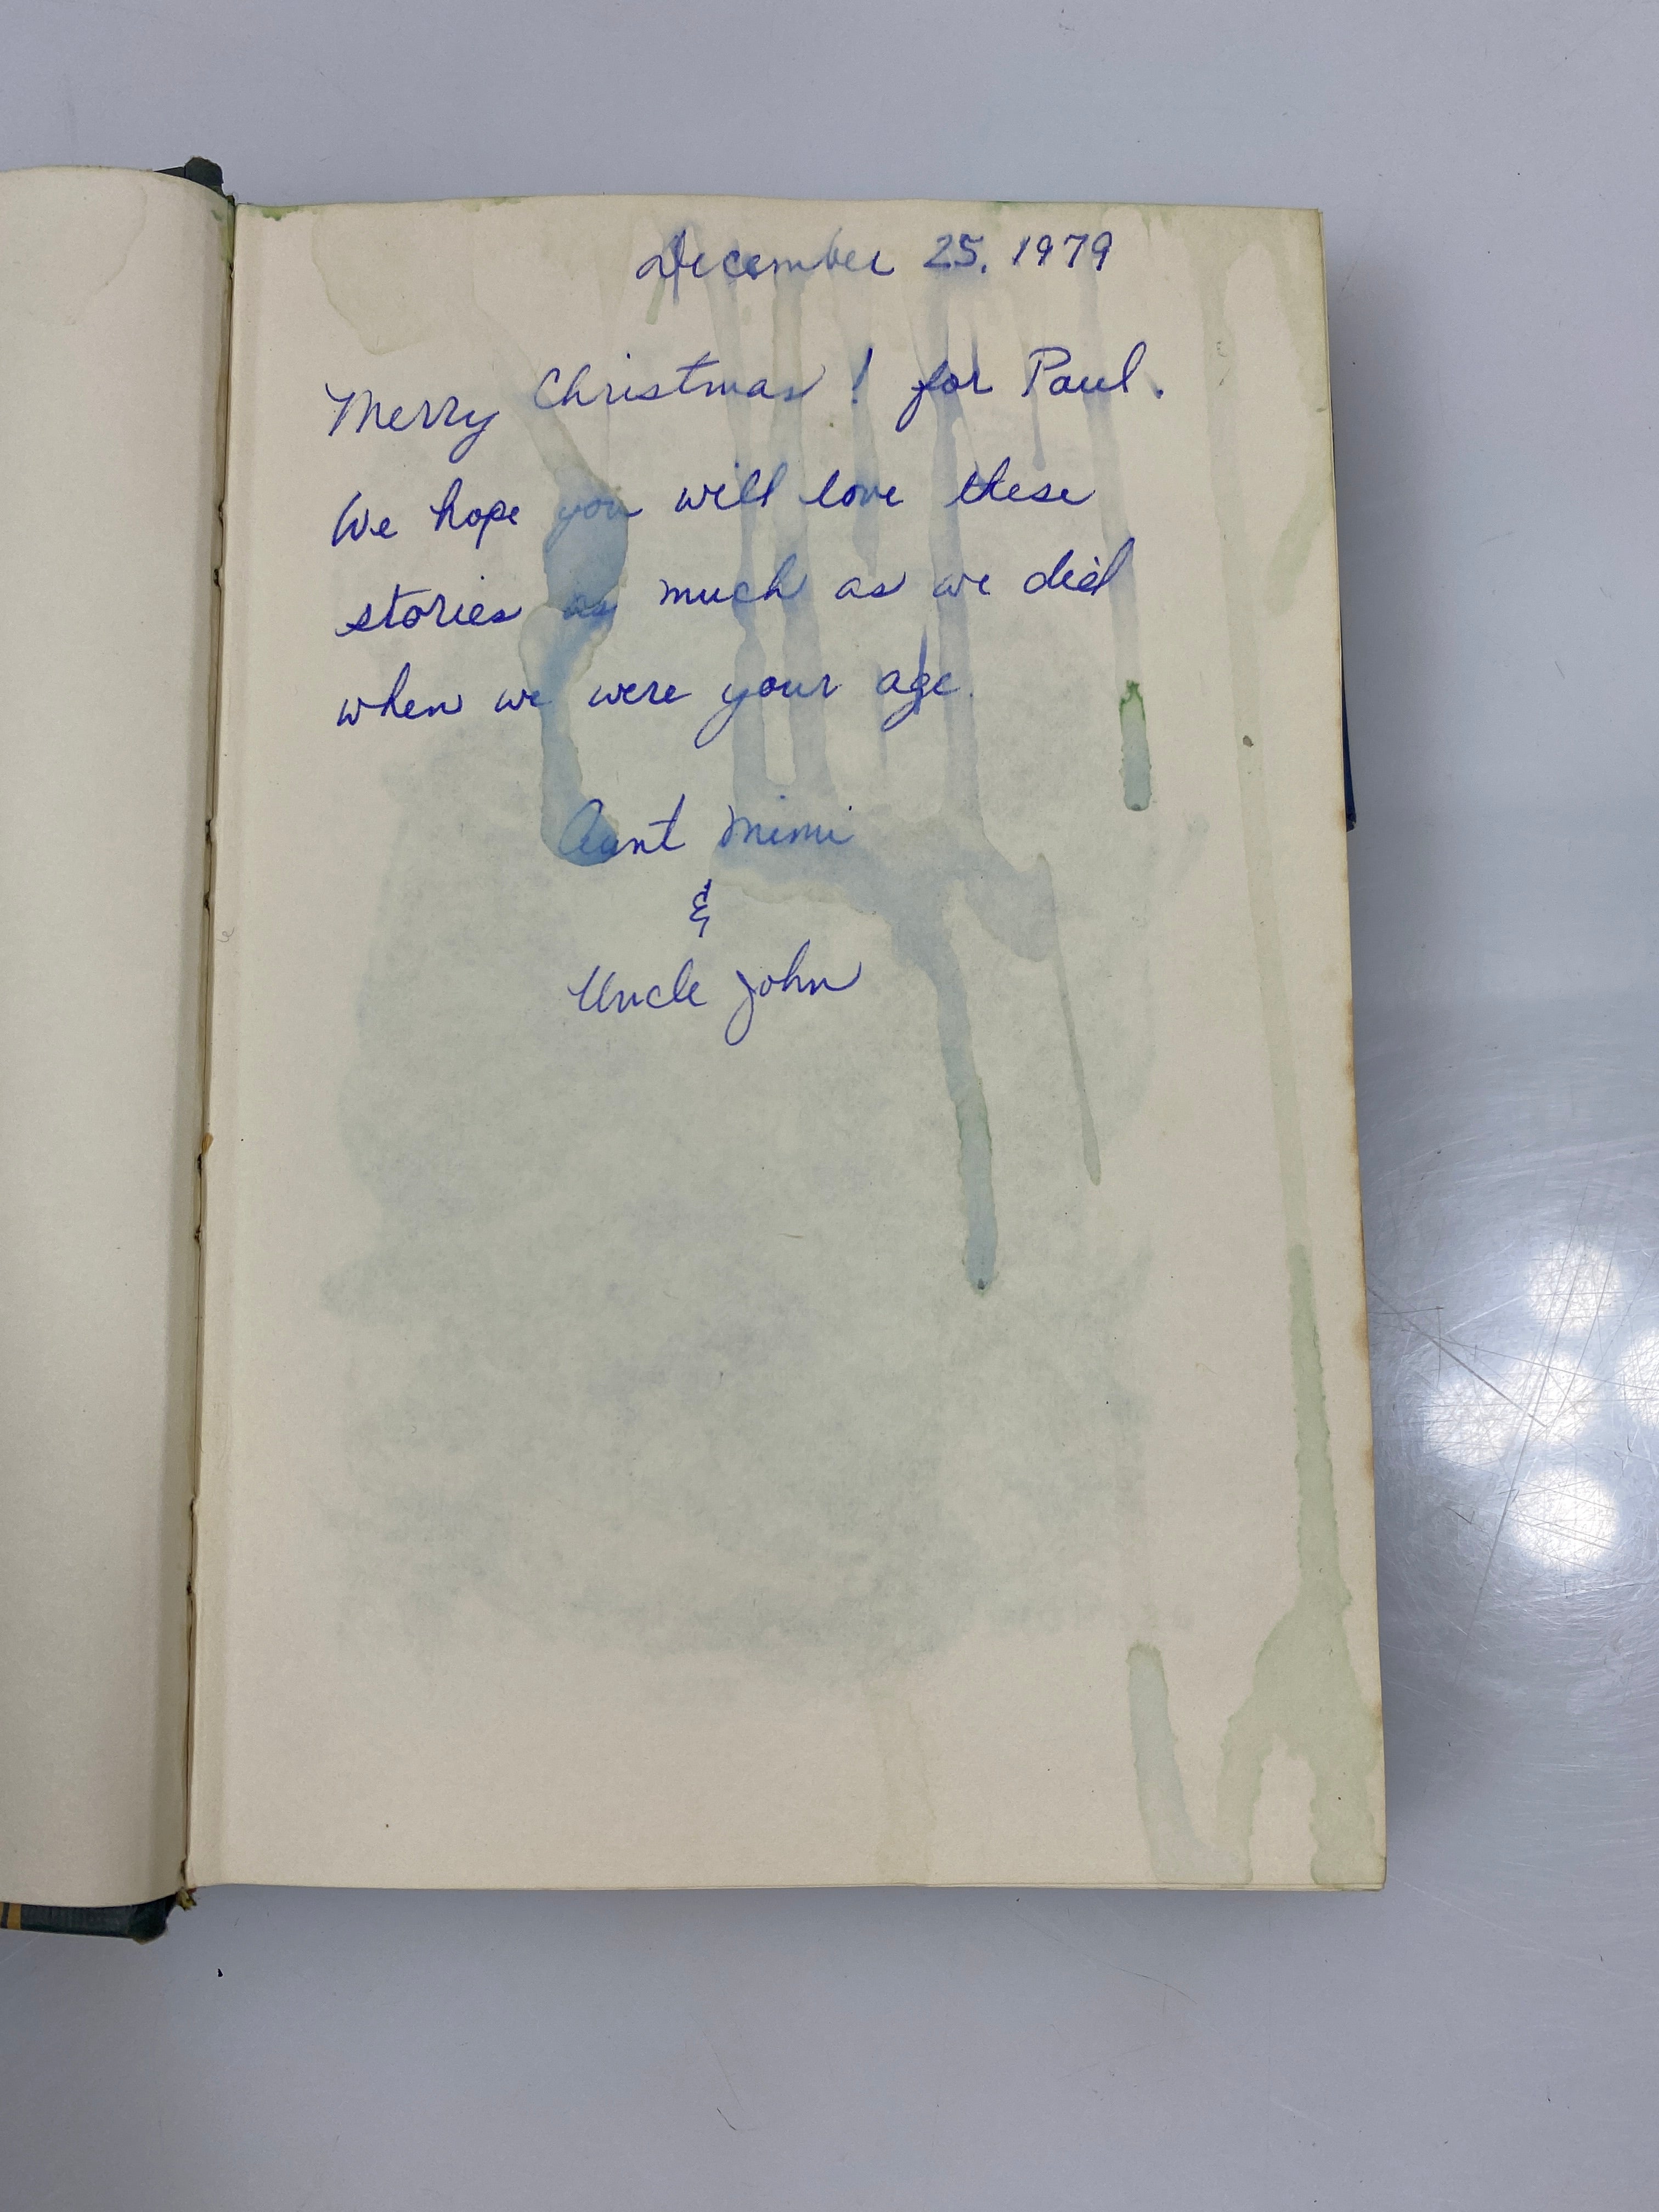 December 25, 1979
Merry Christmas! for Paul.
We hope you will love these
stories as much as we did
when we were your age.
Aunt Mimi
&
Uncle John